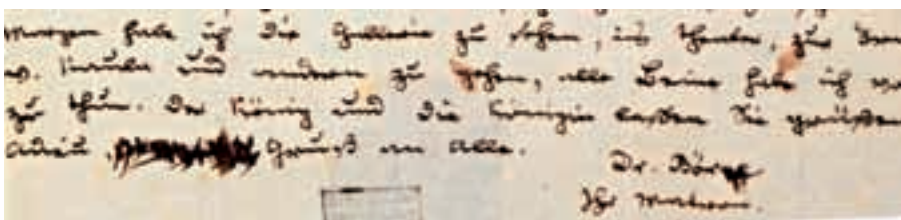 Morgen habe ich die Gallerie zu sehen, ins Theater, zur
v. und andern zu gehen, alle Beine habe ich
zu thun. Der König und die Königin lassen Sie grüßen
Adieu, Gruß an Alle.
Dr.
Ihr